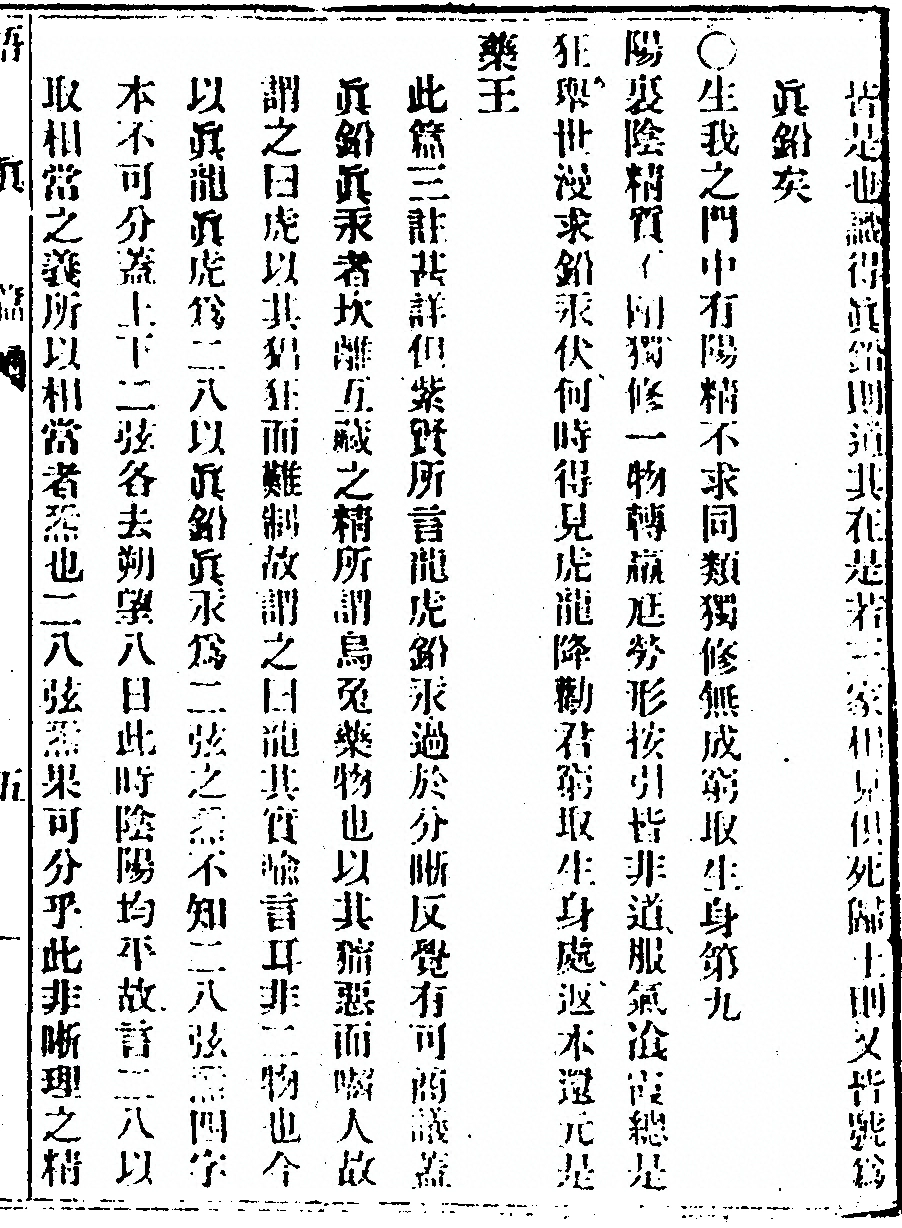 皆是也識得眞鉛則道其在是若三家相見但死歸土則又皆號爲
眞鉛矣
○生我之門中有陽精不求同類獨修無成窮取生身第九
陽裏陰精質不剛獨修一物轉羸尫勞形按引皆非道服氣飡霞總是
狂舉世漫求鉛汞伏何時得見虎龍降勸君窮取生身處返本還元是
藥王
此篇三註甚詳但紫賢所言龍虎鉛汞過於分晰反覺有可商議蓋
眞鉛眞汞者坎離五藏之精所謂烏兎藥物也以其獰惡而嚙人故
謂之曰虎以其猖狂而難制故謂之曰龍其實喻言耳非二物也今
以眞龍眞虎爲二八以眞鉛眞汞爲二弦之炁不知二八弦炁四字
本不可分蓋上下二弦各去朔望八日此時陰陽均平故言二八以
取相當之義所以相當者炁也二八弦炁果可分乎此非晰理之精
悟眞篇
五